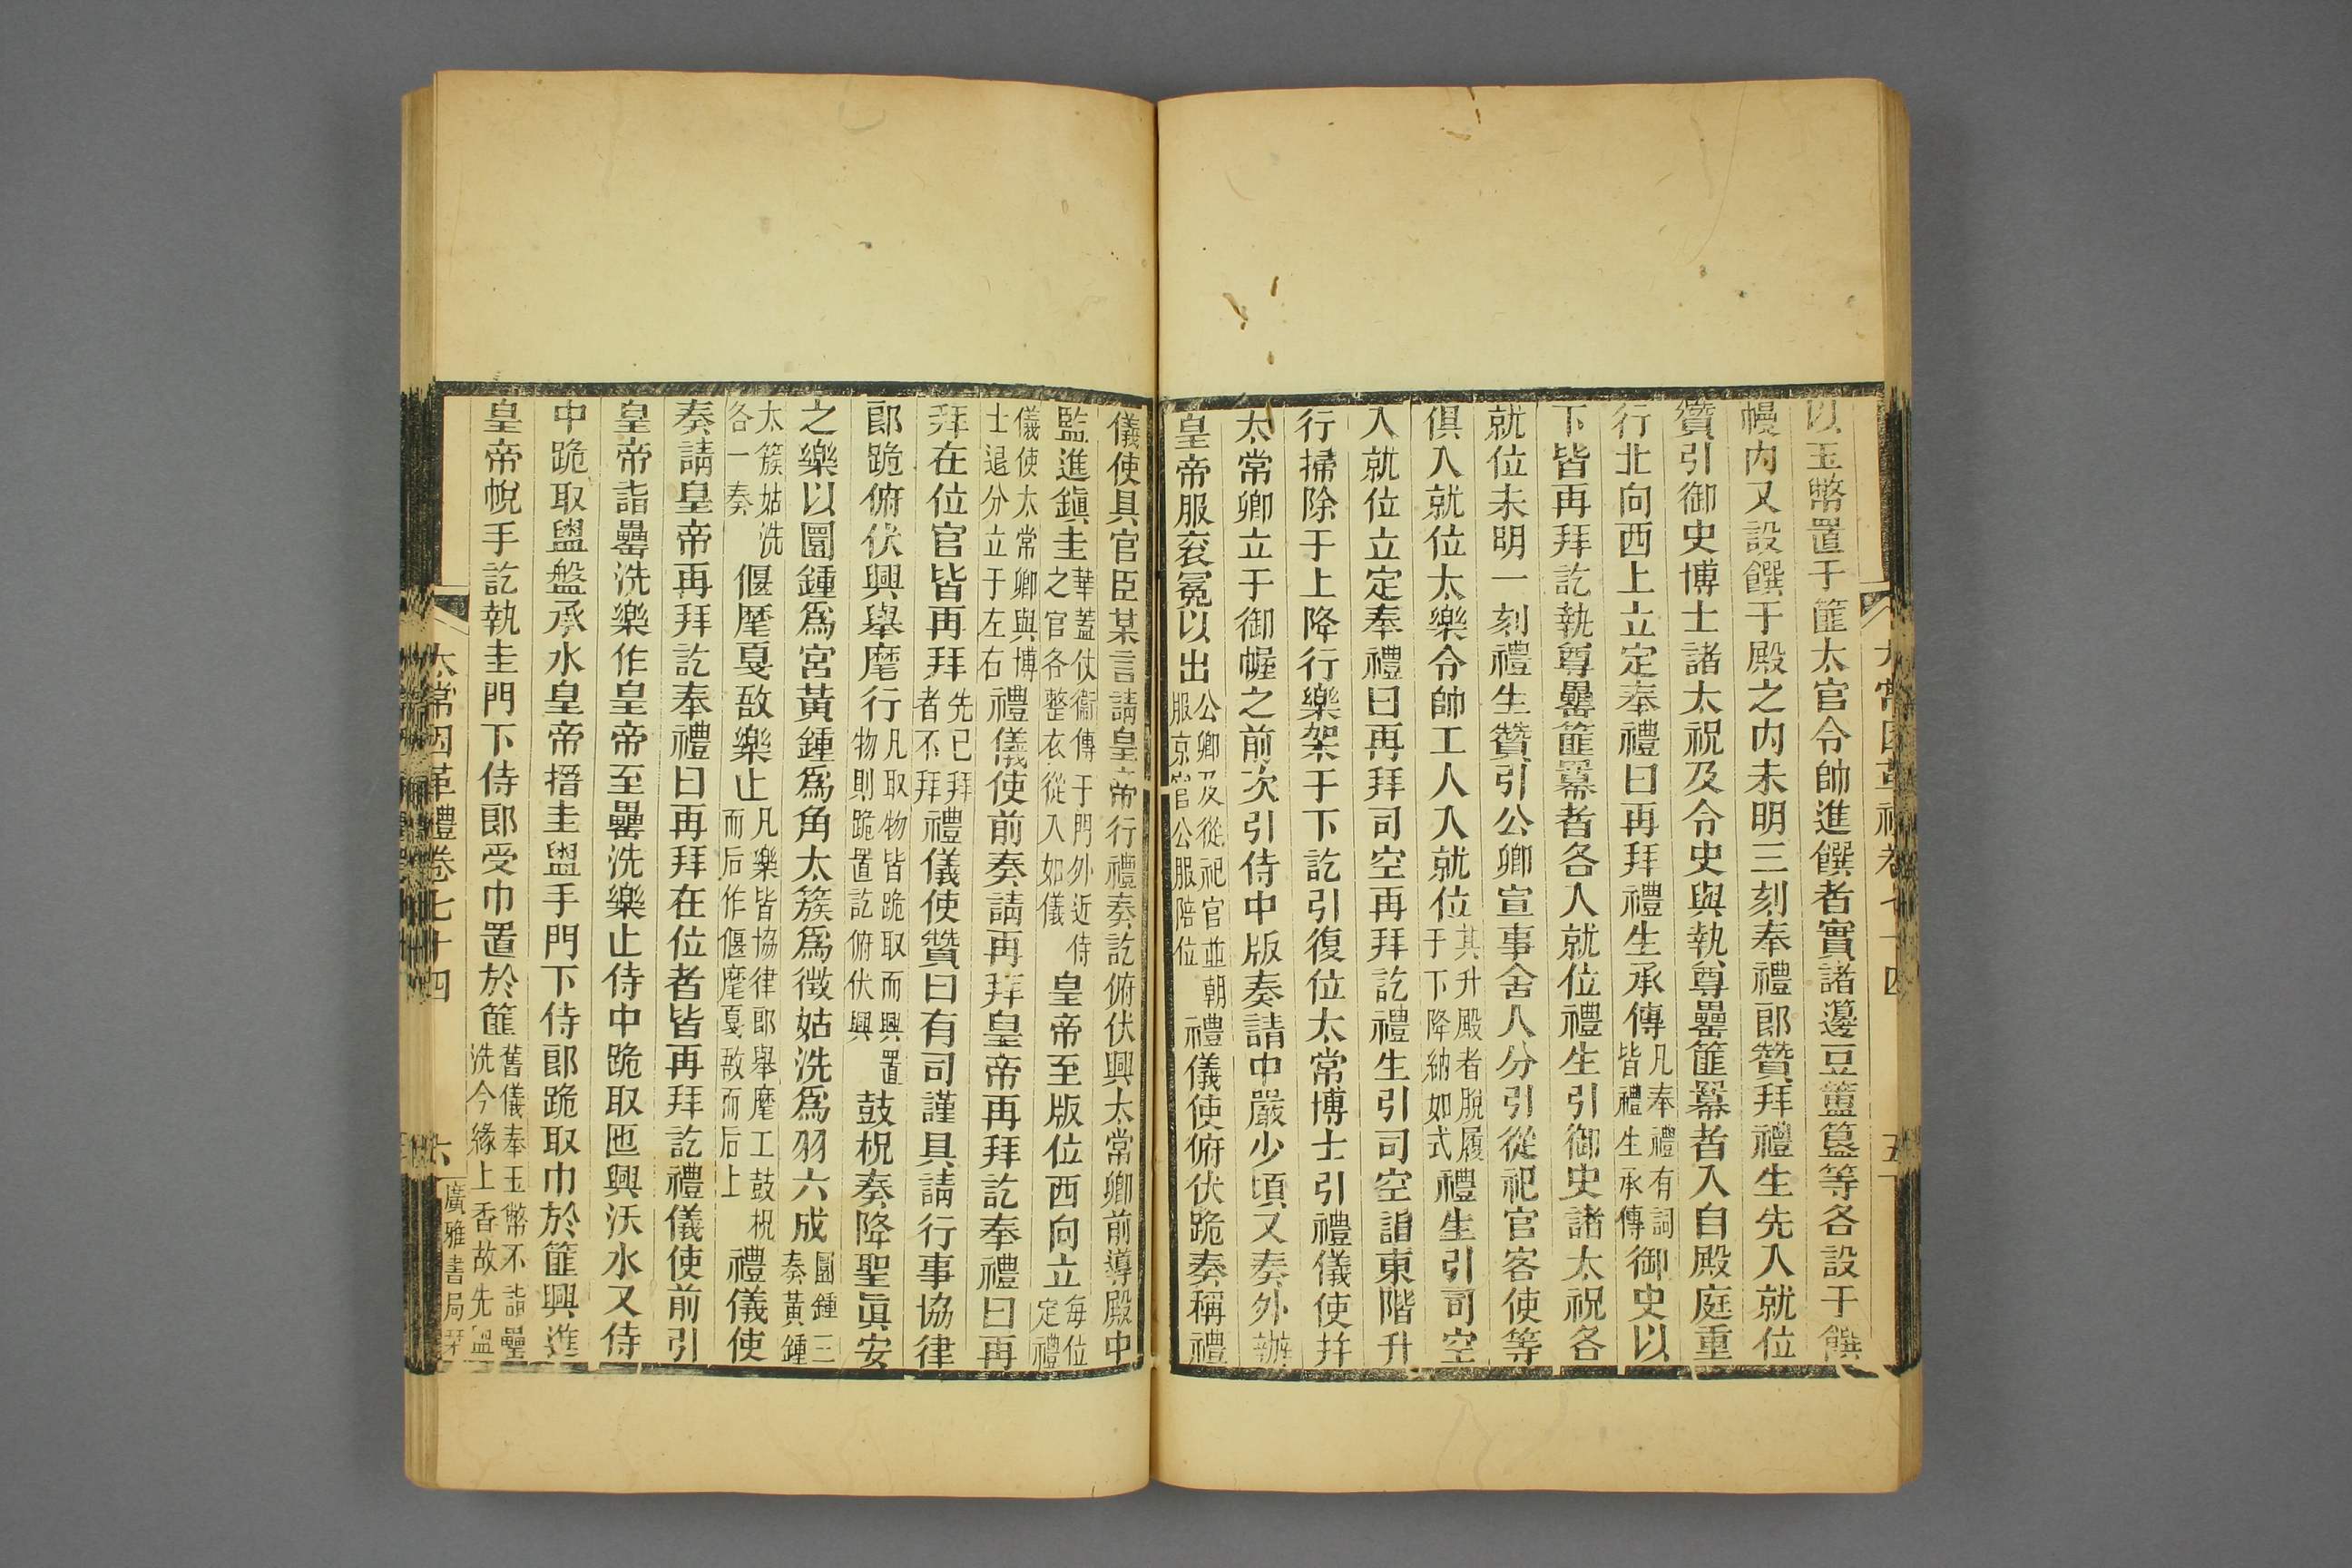 以玉幣置于篚太官令帥進饌者實諸籩豆簠簋等各設于饌
幔內又設饌于殿之內未明三刻奉禮郎贊拜禮生先入就位
贊引御史博士諸太祝及令史與執尊罍篚羃者入自殿庭重
行北向西上立定奉禮曰再拜禮生承傳凡奉禮有詞皆禮生承傳御史以
下皆再拜訖執尊罍篚羃者各入就位禮生引御史諸太祝各
就位未明一刻禮生贊引公卿宣事舍人分引從祀官客使等
俱入就位太樂令帥工人入就位其升殿者脫履于下降納如式禮生引司空
入就位立定奉禮曰再拜司空再拜訖禮生引司空詣東階升
行掃除于上降行樂架于下訖引復位太常博士引禮儀使并
太常卿立于御幄之前次引侍中版奏請中嚴少頃又奏外辦
皇帝服衮冕以出公卿及從祀官並朝服京官公服陪位禮儀使俯伏跪奏稱禮
儀使具官臣某言請皇帝行禮奏訖俯伏興太常卿前導殿中
監進鎭圭華蓋仗衞傳于門外近侍之官各整衣從入如儀皇帝至版位西向立每位定禮
儀使太常卿與博士退分立于左右禮儀使前奏請再拜皇帝再拜訖奉禮曰再
拜在位官皆再拜先已拜者不拜禮儀使贊曰有司謹具請行事協律
郎跪俯伏興舉麾行凡取物皆跪取而興置物則跪置訖俯伏興鼓柷奏降聖眞安
之樂以圜鍾爲宮黃鍾爲角太簇爲徵姑洗爲羽六成圜鍾三奏黃鍾
太簇姑洗各一奏偃麾戛敔樂止凡樂皆協律郎舉麾工鼓柷而后作偃麾戛敔而后止禮儀使
奏請皇帝再拜訖奉禮曰再拜在位者皆再拜訖禮儀使前引
皇帝詣罍洗樂作皇帝至罍洗樂止侍中跪取匜興沃水又侍
中跪取盥盤承水皇帝搢圭盥手門下侍郎跪取巾於篚興進
皇帝帨手訖執圭門下侍郎受巾置於篚舊儀奉玉幣不詣罍洗今緣上香故先盥
太常因革禮卷七十四
六
廣雅書局栞